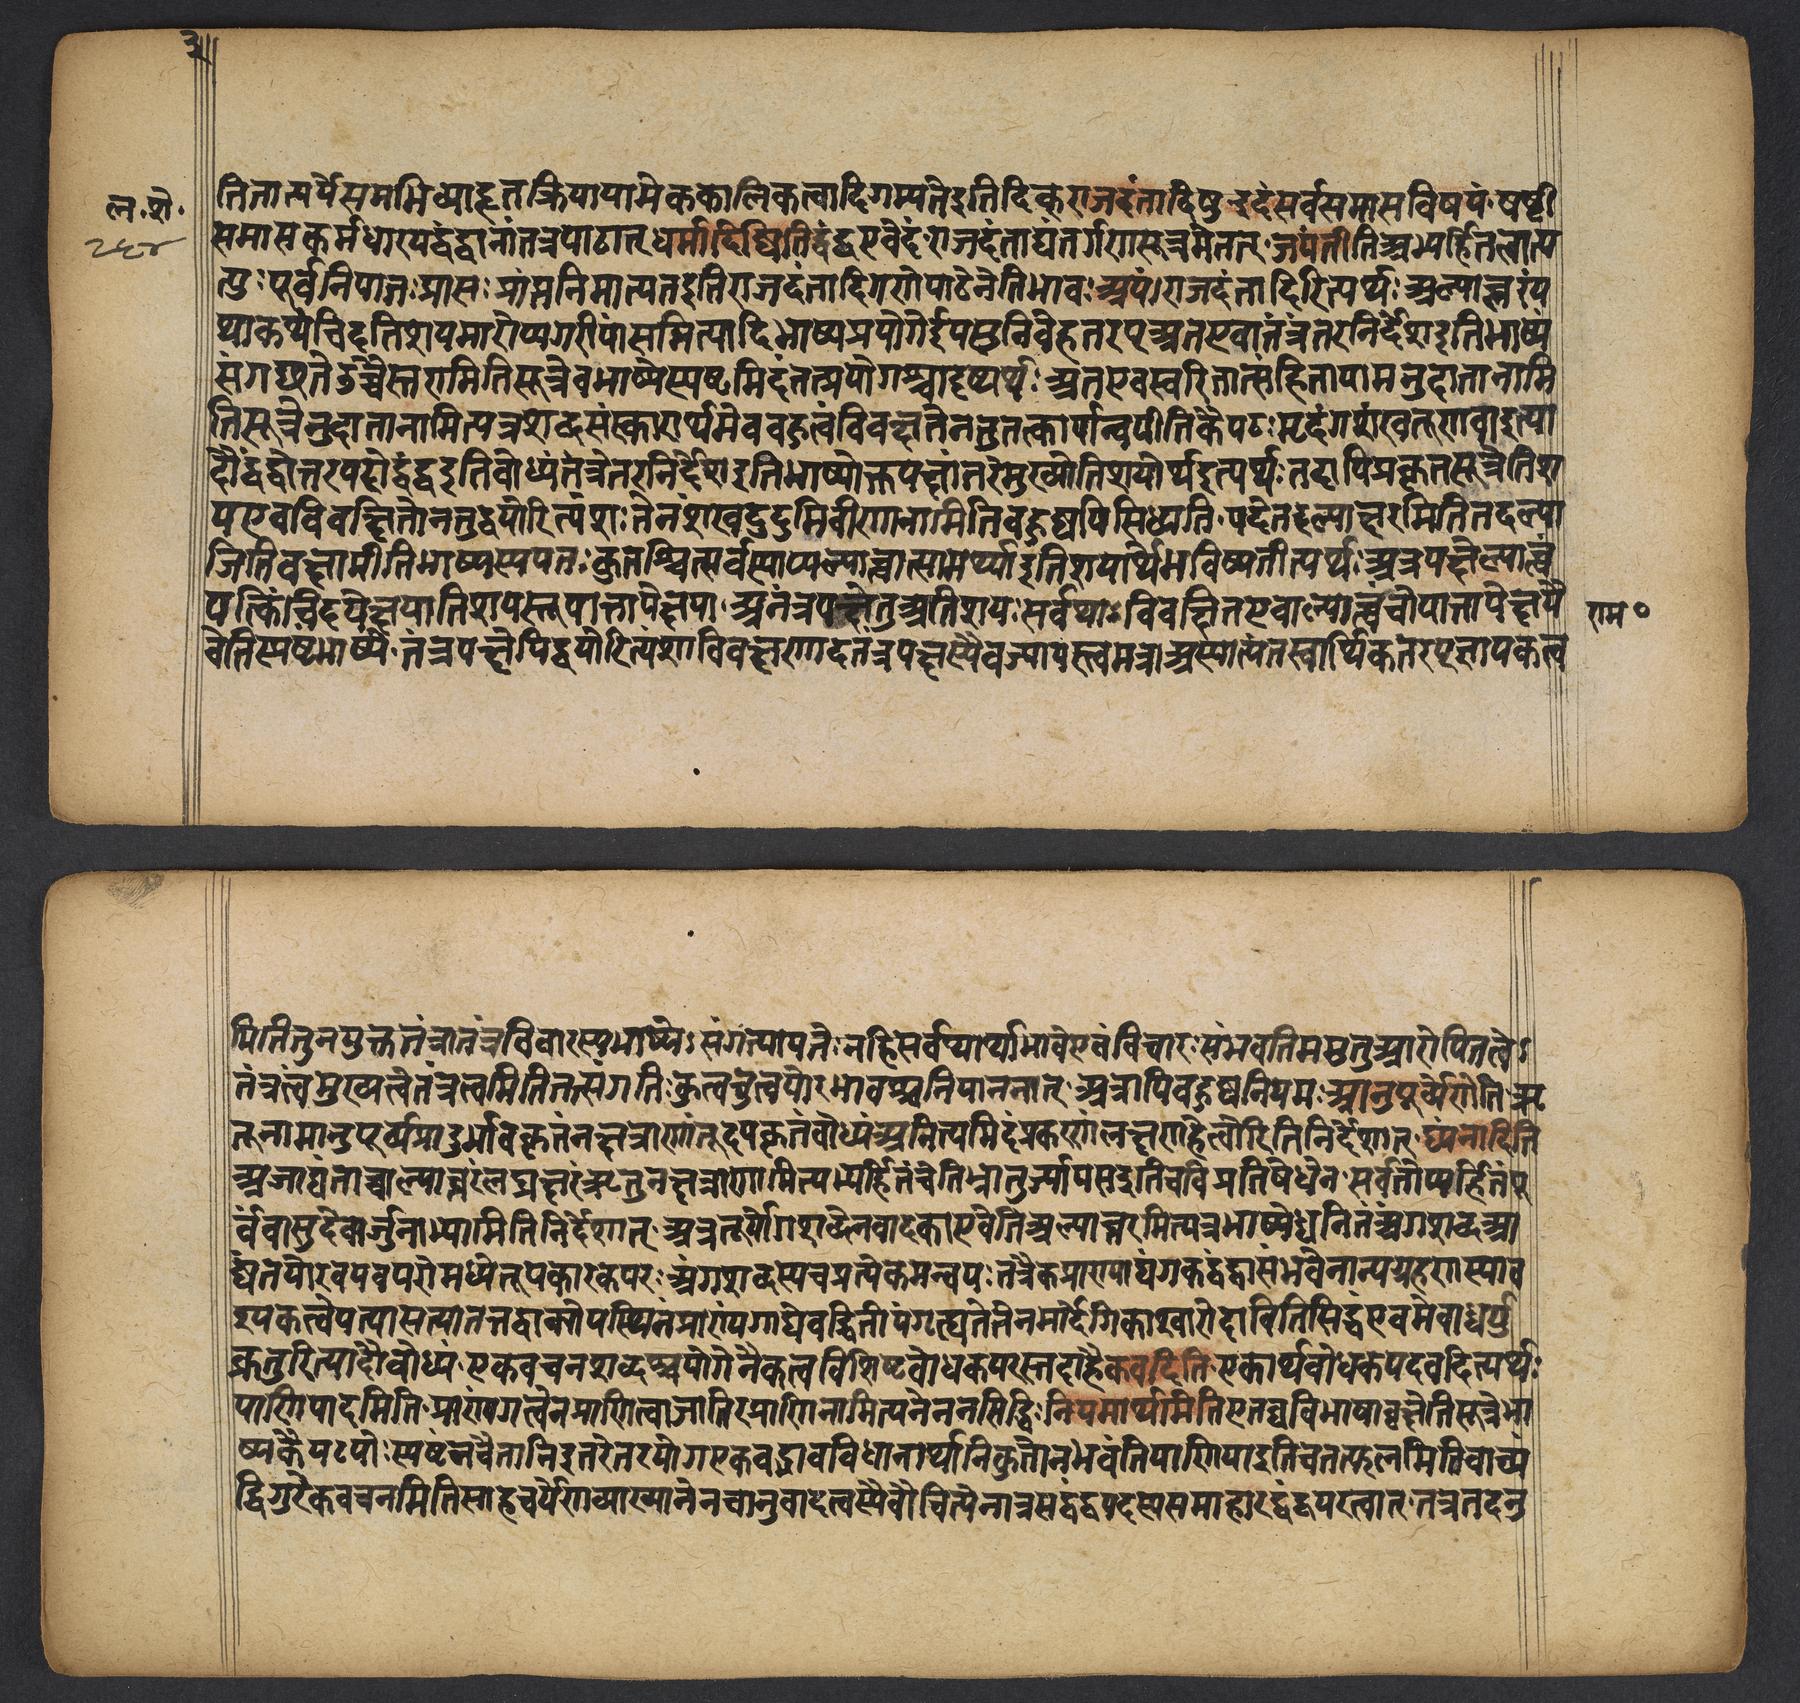 ल.शे.
२६४
तितात्पर्येसमभिव्याहृतक्रियायामेककालिकत्वादिगम्यतेइतिदिक् राजदंतादिषु इदंसर्वसमासविषयं षष्ठी
समासकर्मधारयद्वंद्वानांतत्रपाठात् धर्मादिष्वितिद्वंद्वएवेदं राजदंताद्यंतर्गणसूत्रमेतत् जपंतीतिअभ्यर्हितत्वात्प
त्युः पूर्वनिपातः प्राप्तः प्राप्तनिमात्यतइतिराजदंतादिगणेपाठेनेतिभावः अयं राजदंतादिरित्यर्थः अल्पाच्तरं य
थाकथंचिदतिशयमारोप्यगरीयांसमित्यादिभाष्यप्रयोगेईयसुन्निवेहतरप् अतएवातंत्रंतरनिर्देशइतिभाष्यं
संगच्छतेउच्चैस्तरामितिसूत्रेवभाष्येस्पष्टमिदंतत्प्रयोगश्चादृष्टार्थः अतएवस्वरितात्संहितायामनुदात्तानामि
तिसूत्रेनुदात्तानामित्यत्रशब्दसंस्कारार्थमेवबहुत्वंविवक्षतेनतुतत्कार्यान्वयीतिकैयटः मृदंगशंखतूणवाइत्या
दौद्वंद्वोत्तरपदोद्वंद्वइतिबोध्यं तंत्रेतरनिर्देशइतिभाष्योक्तपक्षांतरेमुख्योतिशयोर्थइत्यर्थः तदापिप्रकृतसूत्रेतिश
यएवविवक्षितोनतुद्वयोरित्यंशः तेनशंखदुदुभिवीणानामितिबहुष्वपिसिध्यति यदेतदल्पाच्तरमितितदल्पा
जितिवक्ष्यामीतिभाष्यस्ययतः कुतश्चित्सर्वस्याप्यल्पाच्त्वात्सामर्थ्यादतिशयार्थेभविष्यतीत्यर्थः अत्रपक्षेल्पाच्त्वं
यत्किंचिदपेक्षयातिशयस्तूपात्तापेक्षया अतंत्रपक्षेतुअतिशयः सर्वथा विवक्षितएवाल्पाच्त्वंचोपात्तापेक्षयै
वेतिस्पष्टंभाष्ये तंत्रपक्षेपिद्वयोरित्यंशाविवक्षणादतंत्रपक्षस्यैवज्यायस्त्वमत्रा अस्मात्यंतस्वार्थिकतरप् ज्ञापकत्व
राम०
मितितुनयुक्तं तंत्रातंत्रविचारस्यभाष्ये संगत्यापत्तेः नहिसर्वथार्थाभावेएवंविचारः संभवतिममतुआरोपितत्वे
तंत्रत्वंमुख्यत्वेतंत्रत्वमितितत्संगतिः कुत्वचुत्वयोरभावश्चनिपातनात् अत्रापिबहुष्वनियमः आनुपूर्व्येणेति ऋ
तूनामानुपूर्व्यप्रादुर्भावकृतंनक्षत्राणांतूदयकृतंबोध्यं अनित्यमिदंप्रकरणंलक्षणहेत्वोरितिनिर्देशात् घ्यनादिति
अजाद्यंताच्चाल्पाच्तरंलघ्वक्षरंऋतुनक्षत्राणामित्यभ्यर्हितंचेतिभ्रातुर्ज्यायसइतिचविप्रतिषेधेन सर्वतोप्यर्हितंपू
र्वं वासुदेवार्जुनाभ्यामितिनिर्देशात् अत्रतूर्यांगशब्देनवादकाएवेतिअल्पाच्तरमित्यत्रभाष्येध्वनितं अंगशब्दआ
द्यंतयोरवयवपरोमध्येतूपकारकपरः अंगशब्दस्यचप्रत्येकमन्वयः तत्रैकप्राण्याद्यंगकद्वंद्वासंभवेनान्यग्रहणस्याव
श्यकत्वेपत्यासत्यातत्तद्वाक्योपस्थितंप्राण्यंगाद्येवद्वितीयंगत्घतेतेनमार्दंगिकाश्वारोहावितिसिद्धं एवमेवाध्वर्यु
क्रतुरित्यादौबोध्यं एकवचनशब्दश्चयोगेनैकत्वविशिष्टबोधकपरस्तदाहैकवदिति एकार्थबोधकपदवदित्यर्थः
पाणिपादमिति प्राण्यंगत्वेनप्राणित्वाज्जातिरप्राणिनामित्यनेननसिद्धिः नियमार्थमितिएतच्चविभाषावृक्षेतिसूत्रेभा
ष्यकैयटयोः स्पष्टं नचैतानिइतरेतरयोगएकवद्भावविधानार्थानिकुतोनभवंतिपाणिपादइतिचतत्फलमितिवाच्यं
द्विगुरेकवचनमितिसाहचर्येणव्याख्यानेनचानुवादत्वस्यैवौचित्येनात्रसद्वंद्वपदस्यसमाहारद्वंद्वपरत्वात् तत्रतदनु